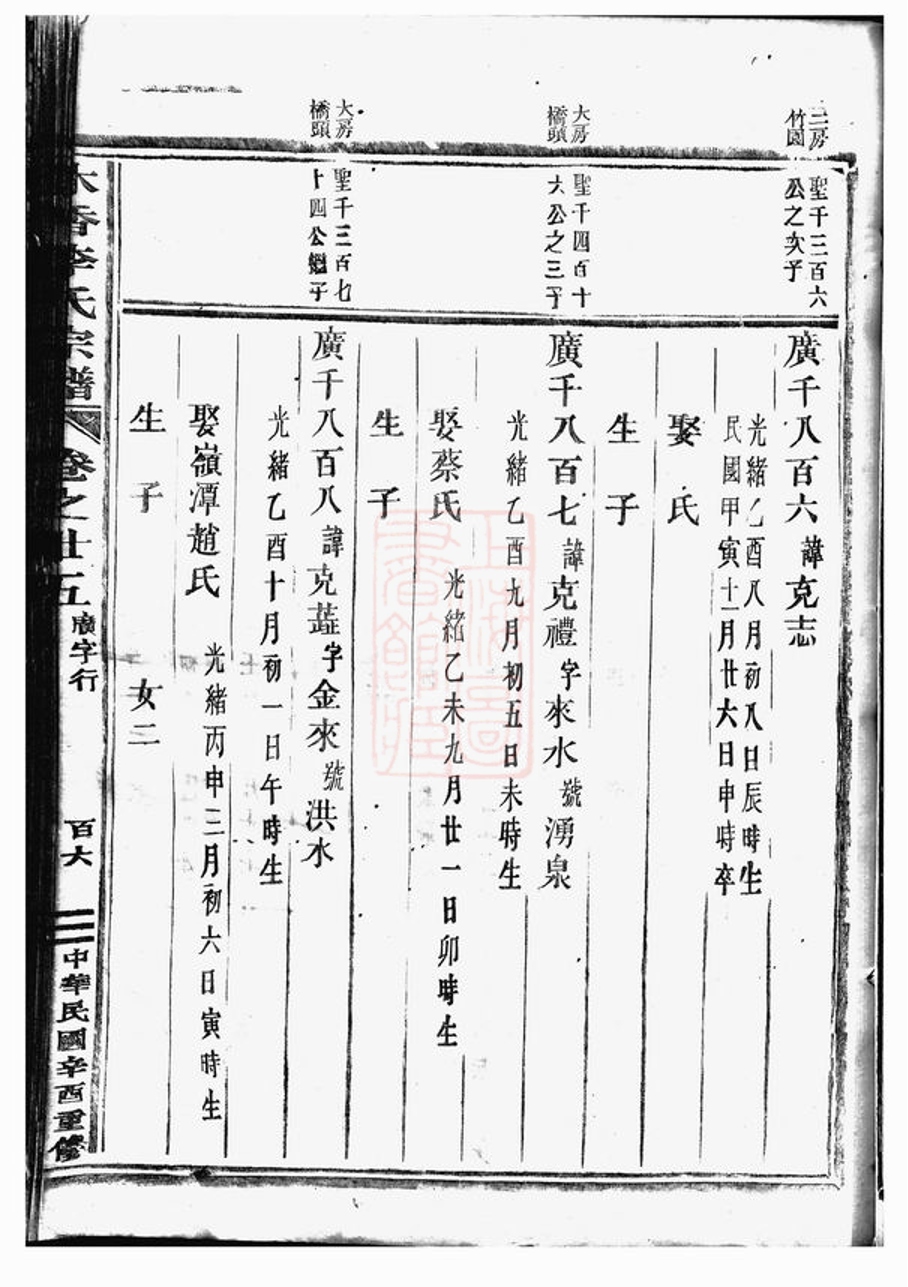 三房
竹園
聖千三百六
公之次子
廣千八百六 諱克志
光緒乙酉八月初八日辰時生
民國甲寅十一月廿六日申時卒
娶 氏
生 子
大房
橋頭
聖千四百十
六公之三子
廣千八百七 諱克禮 字來水 號湧泉
光緒乙酉九月初五日未時生
娶蔡氏 光緒乙未九月廿一日卯時生
生 子
大房
橋頭
聖千三百七
十四公繼子
廣千八百八 諱克蔬 字金來 號洪水
光緒乙酉十月初一日午時生
娶嶺潭趙氏 光緒丙申三月初六日寅時生
生 子 女二
香李氏宗譜 卷之廿五 廣字行 百六 中華民國辛酉重修